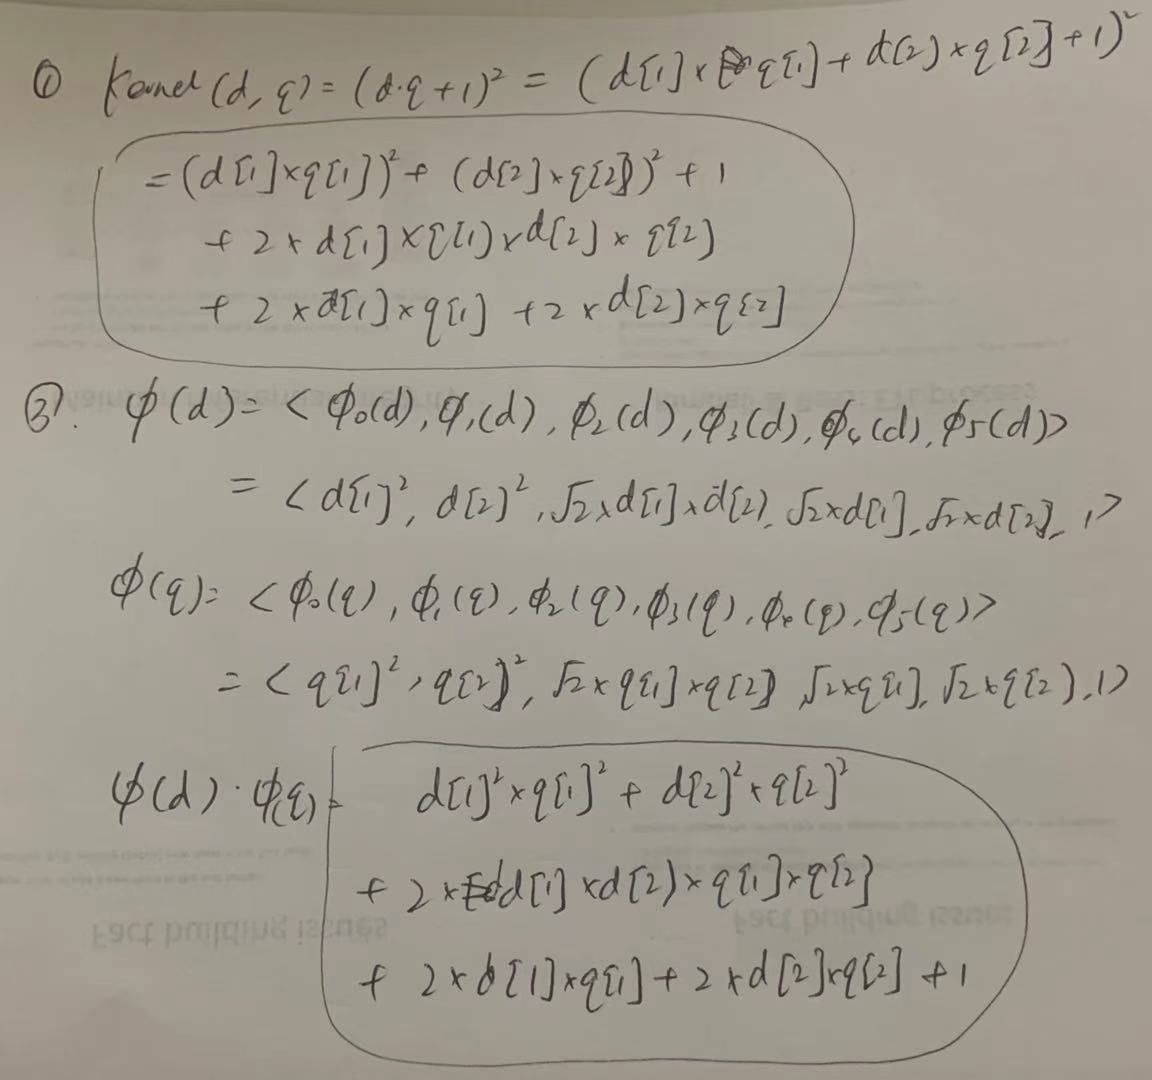 ① Kernel (d, q) = (d·q+1)² = (d[1] × q[1] + d[2] × q[2] + 1)²
= (d[1]×q[1])² + (d[2]×q[2])² + 1
+ 2 × d[1] × q[1] × d[2] × q[2]
+ 2 × d[1] × q[1] + 2 × d[2] × q[2]
②. φ(d) = <φ₀(d), φ₁(d), φ₂(d), φ₃(d), φ₄(d), φ₅(d)>
= <d[1]², d[2]², √2×d[1]×d[2], √2×d[1], √2×d[2], 1>
φ(q) = <φ₀(q), φ₁(q), φ₂(q), φ₃(q), φ₄(q), φ₅(q)>
= <q[1]², q[2]², √2×q[1]×q[2], √2×q[1], √2×q[2], 1>
φ(d)·φ(q) = d[1]²×q[1]² + d[2]²×q[2]²
+ 2×d[1]×d[2]×q[1]×q[2]
+ 2×d[1]×q[1] + 2×d[2]×q[2] + 1
Fact building issues
Fact building issues